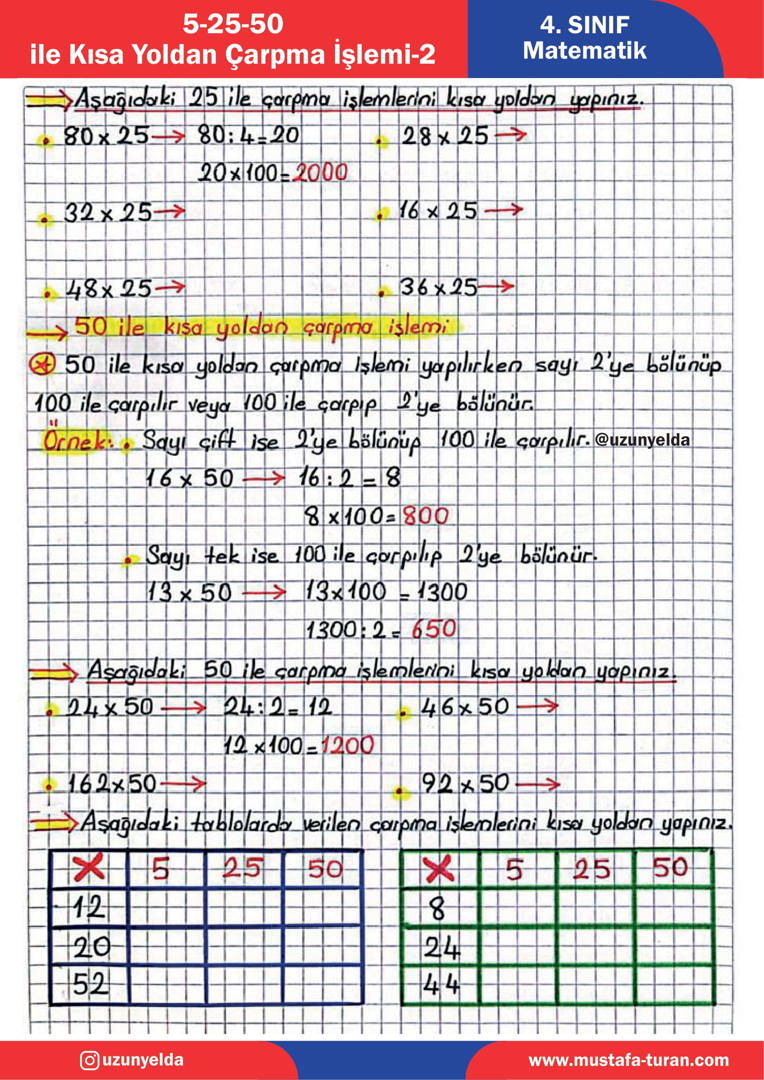 5-25-50
ile Kısa Yoldan Çarpma İşlemi-2
4. SINIF
Matematik
Aşağıdaki 25 ile çarpma işlemlerini kısa yoldan yapınız.
80 x 25 → 80 : 4 = 20
28 x 25 →
20 x 100 = 2000
32 x 25 →
16 x 25 →
48 x 25 →
36 x 25 →
→ 50 ile kısa yoldan çarpma işlemi
50 ile kısa yoldan çarpma işlemi yapılırken sayı 2'ye bölünüp
100 ile çarpılır veya 100 ile çarpıp 2'ye bölünür.
Örnek: • Sayı çift ise 2'ye bölünüp 100 ile çarpılır. @uzunyelda
16 x 50 → 16 : 2 = 8
8 x 100 = 800
• Sayı tek ise 100 ile çarpılıp 2'ye bölünür.
13 x 50 → 13 x 100 = 1300
1300 : 2 = 650
Aşağıdaki 50 ile çarpma işlemlerini kısa yoldan yapınız.
24 x 50 → 24 : 2 = 12
46 x 50 →
12 x 100 = 1200
162 x 50 →
92 x 50 →
Aşağıdaki tablolarda verilen çarpma işlemlerini kısa yoldan yapınız.
X 5 25 50
12
20
52
X 5 25 50
8
24
44
uzunyelda
www.mustafa-turan.com